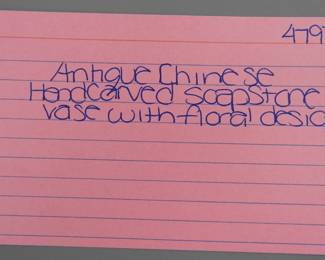 479
Antique Chinese
Handcarved soapstone
vase with floral desig